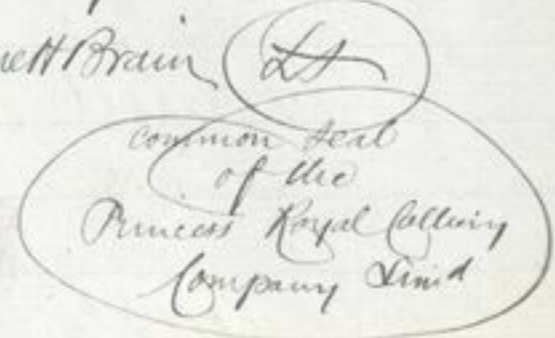 Brain LS
common seal
of the
Princess Royal Colliery
Company Limd